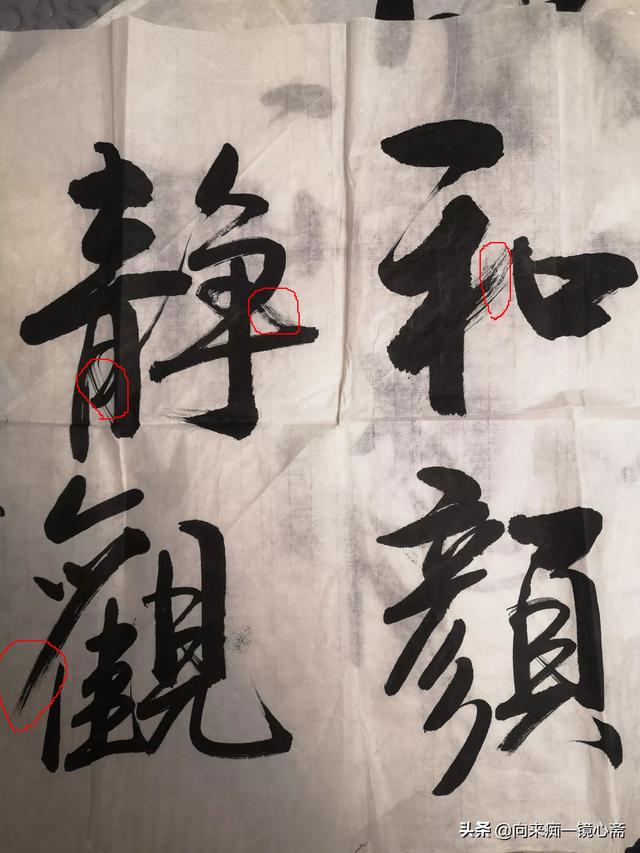 和顔
静觀
头条 @向来痴一镜心斋